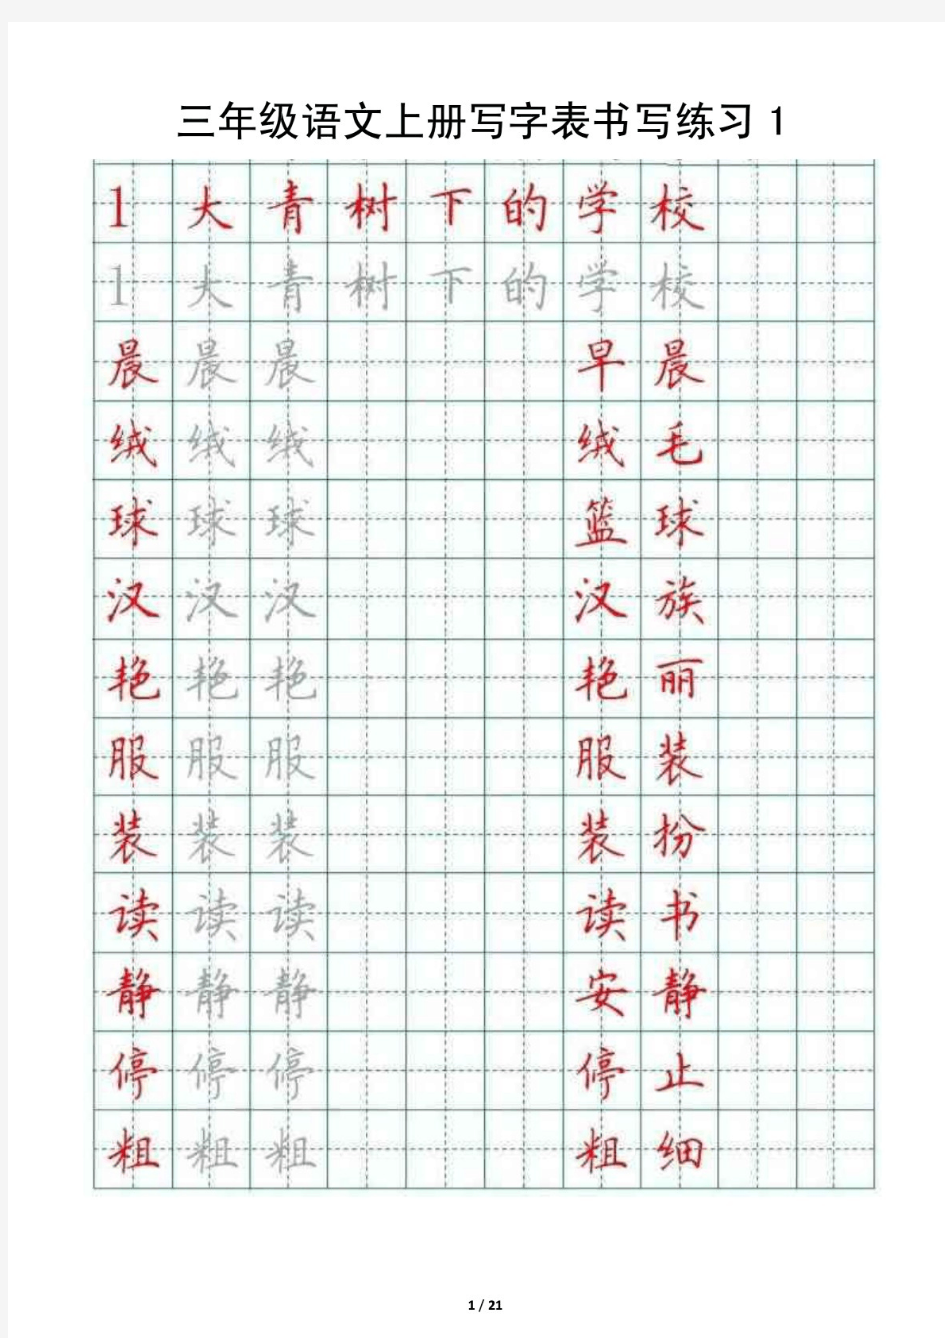 三年级语文上册写字表书写练习1
1 大青树下的学校
1 大青树下的学校
晨 晨 晨 早晨
绒 绒 绒 绒毛
球 球 球 篮球
汉 汉 汉 汉族
艳 艳 艳 艳丽
服 服 服 服装
装 装 装 装扮
读 读 读 读书
静 静 静 安静
停 停 停 停止
粗 粗 粗 粗细
1 / 21